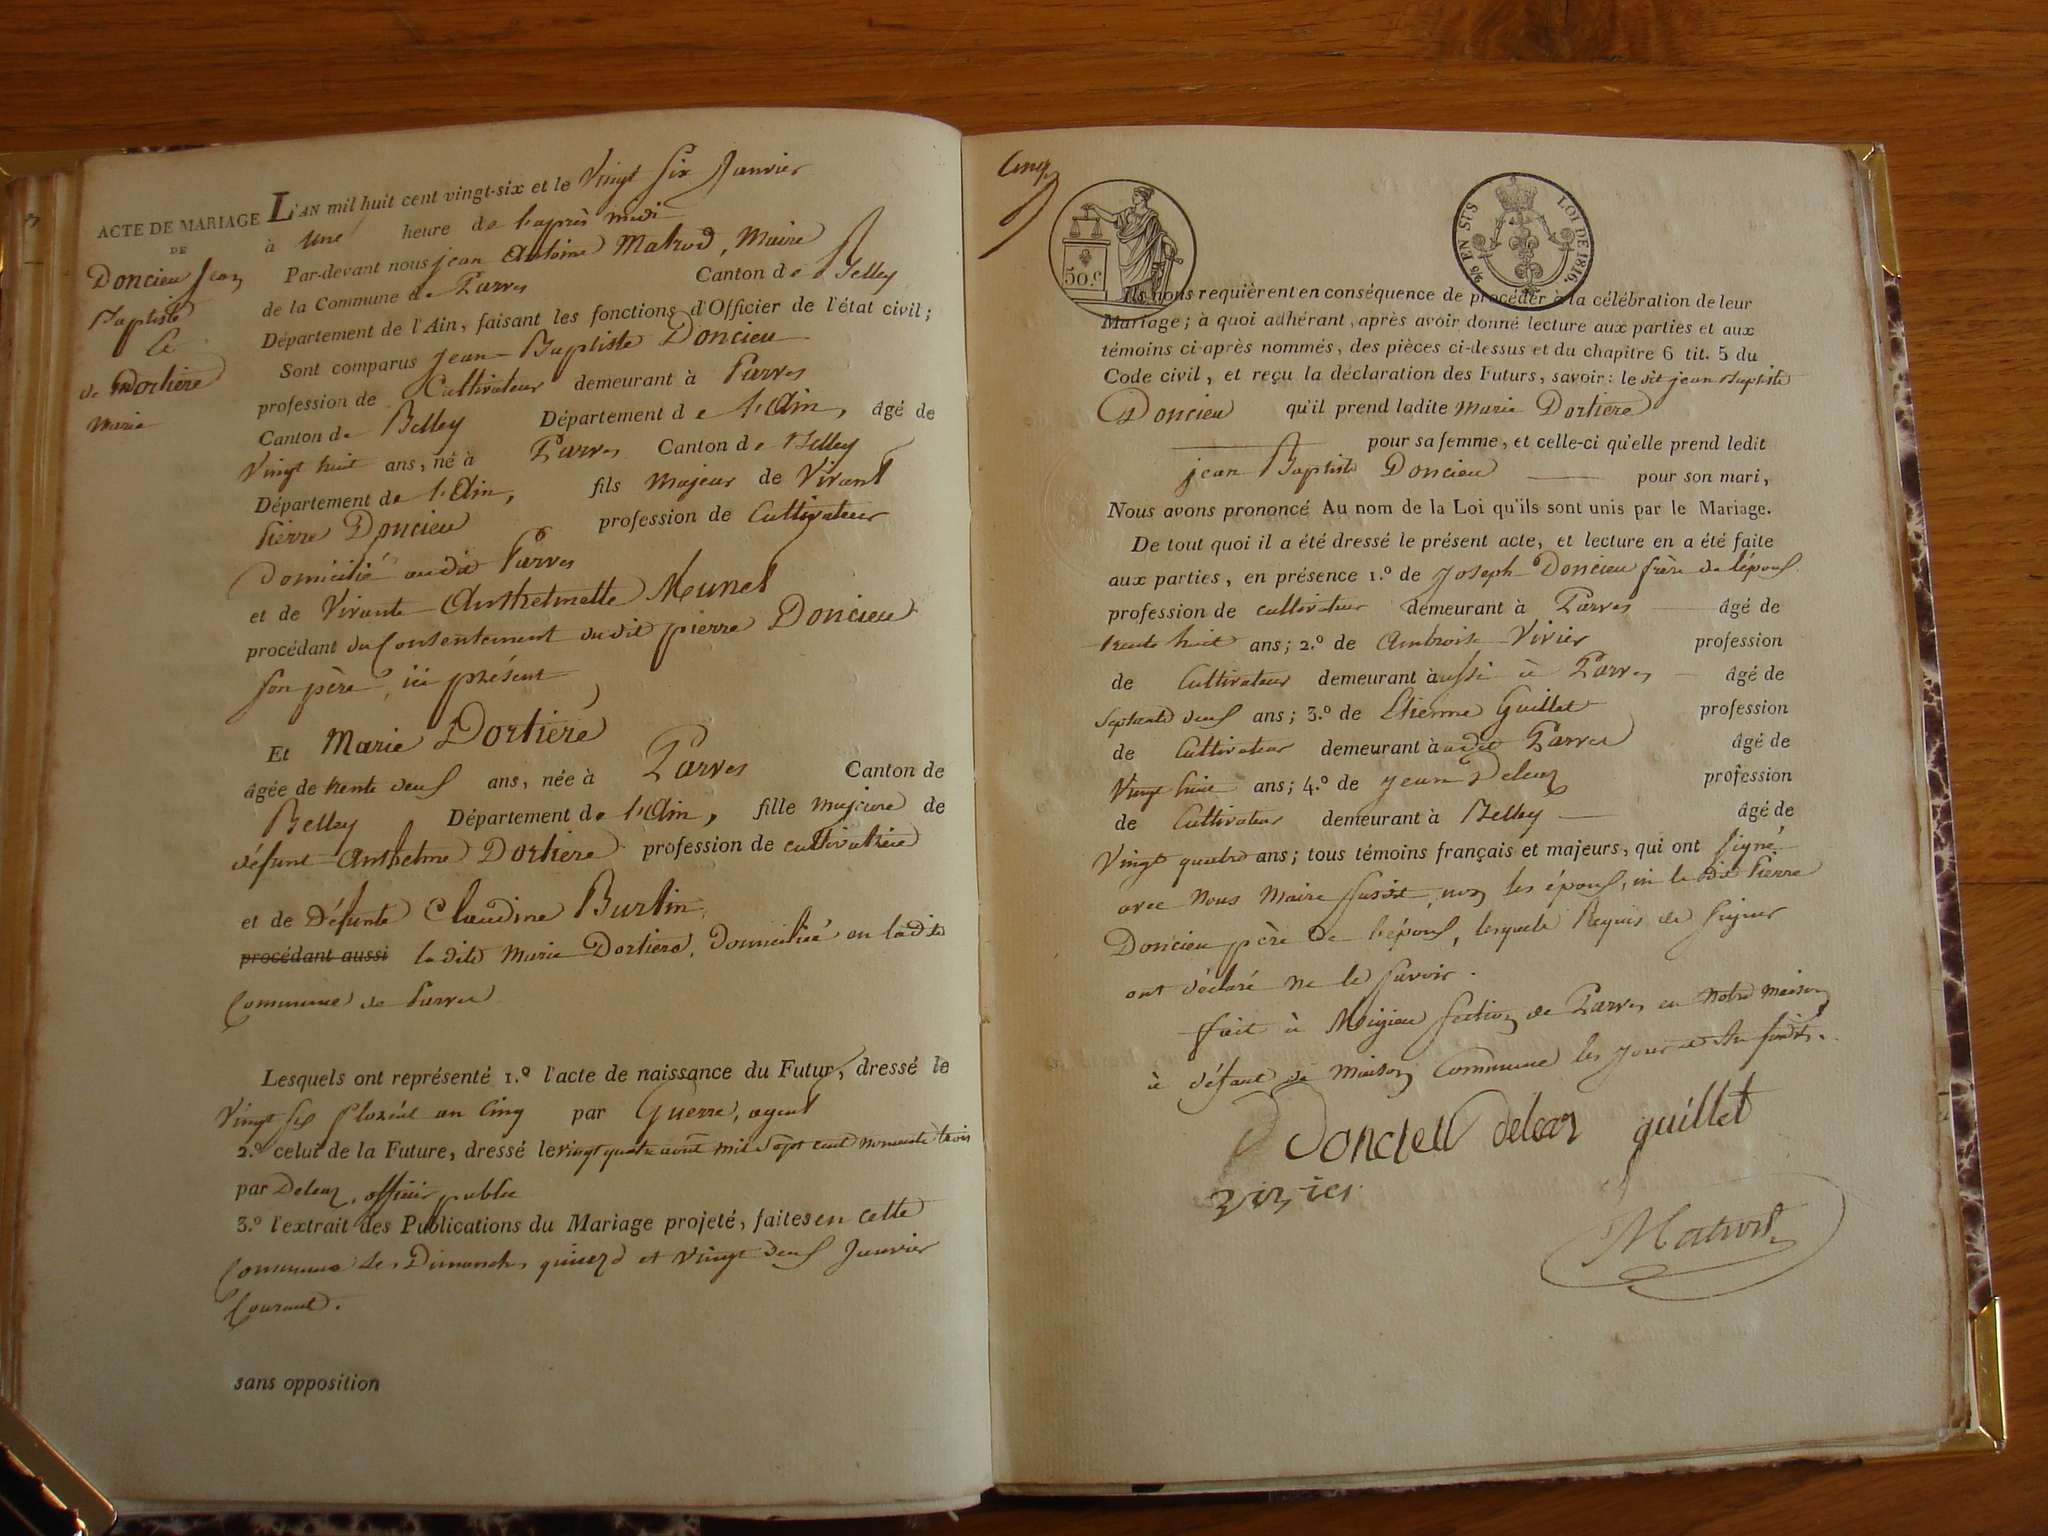 ACTE DE MARIAGE
DE
Doncieu Jean
Baptiste
Et
de Dortière
Marie
L'AN mil huit cent vingt-six et le Vingt six Janvier
à Une heure de l'après midi
Par-devant nous jean Antoine Matrod, Maire
de la Commune de Parves Canton de Belley
Département de l'Ain, faisant les fonctions d'Officier de l'état civil;
Sont comparus jean Baptiste Doncieu
profession de Cultivateur demeurant à Parves
Canton de Belley Département de l'Ain, âgé de
Vingt huit ans, né à Parves Canton de Belley
Département de l'Ain, fils majeur de Vivant
Pierre Doncieu profession de Cultivateur
Domicilié audit Parves
et de Vivante Anthelmette Meunet
procédant du Consentement du dit pierre Doncieu
son père, ici présent
Et Marie Dortière
âgée de trente deux ans, née à Parves Canton de
Belley Département de l'Ain, fille majeure de
défunt Anthelme Dortière profession de cultivatrice
et de Défunte Claudine Burtin
procédant aussi la dite Marie Dortiere, Domiciliée en ladite
Commune de Parves
Lesquels ont représenté 1.º l'acte de naissance du Futur, dressé le
Vingt six floréal an Cinq par Guerre, agent
2.º celui de la Future, dressé le vingt quatre août mil sept cent nonante trois
par Deleaz, officier public
3.º l'extrait des Publications du Mariage projeté, faites en cette
Commune les Dimanches quinze et vingt deux Janvier
Courant.
sans opposition
Cinq
50.c
EN SUS
LOI DE 1816.
Ils nous requièrent en conséquence de procéder à la célébration de leur
Mariage; à quoi adhérant, après avoir donné lecture aux parties et aux
témoins ci-après nommés, des pièces ci-dessus et du chapitre 6 tit. 5 du
Code civil, et reçu la déclaration des Futurs, savoir: le dit jean Baptiste
Doncieu qu'il prend ladite Marie Dortiere
pour sa femme, et celle-ci qu'elle prend ledit
jean Baptiste Doncieu pour son mari,
Nous avons prononcé Au nom de la Loi qu'ils sont unis par le Mariage.
De tout quoi il a été dressé le présent acte, et lecture en a été faite
aux parties, en présence 1.º de Joseph Doncieu frère de l'époux
profession de cultivateur demeurant à Parves âgé de
trente huit ans; 2.º de Ambroise Vivier profession
de Cultivateur demeurant aussi à Parves âgé de
septante deux ans; 3.º de Etienne Guillet profession
de Cultivateur demeurant audit Parves âgé de
Vingt huit ans; 4.º de jean Deleaz profession
de Cultivateur demeurant à Belley âgé de
Vingt quatre ans; tous témoins français et majeurs, qui ont signé
avec Nous Maire susdit, non les époux, ni le dit Pierre
Doncieu père de l'époux, lesquels Requis de signer
ont déclaré ne le savoir.
fait à Meizieu section de Parves en Notre maison
à défaut de Maison Commune les jour et an susdits.
Doncieu deleaz guillet
Vivier
Matrod